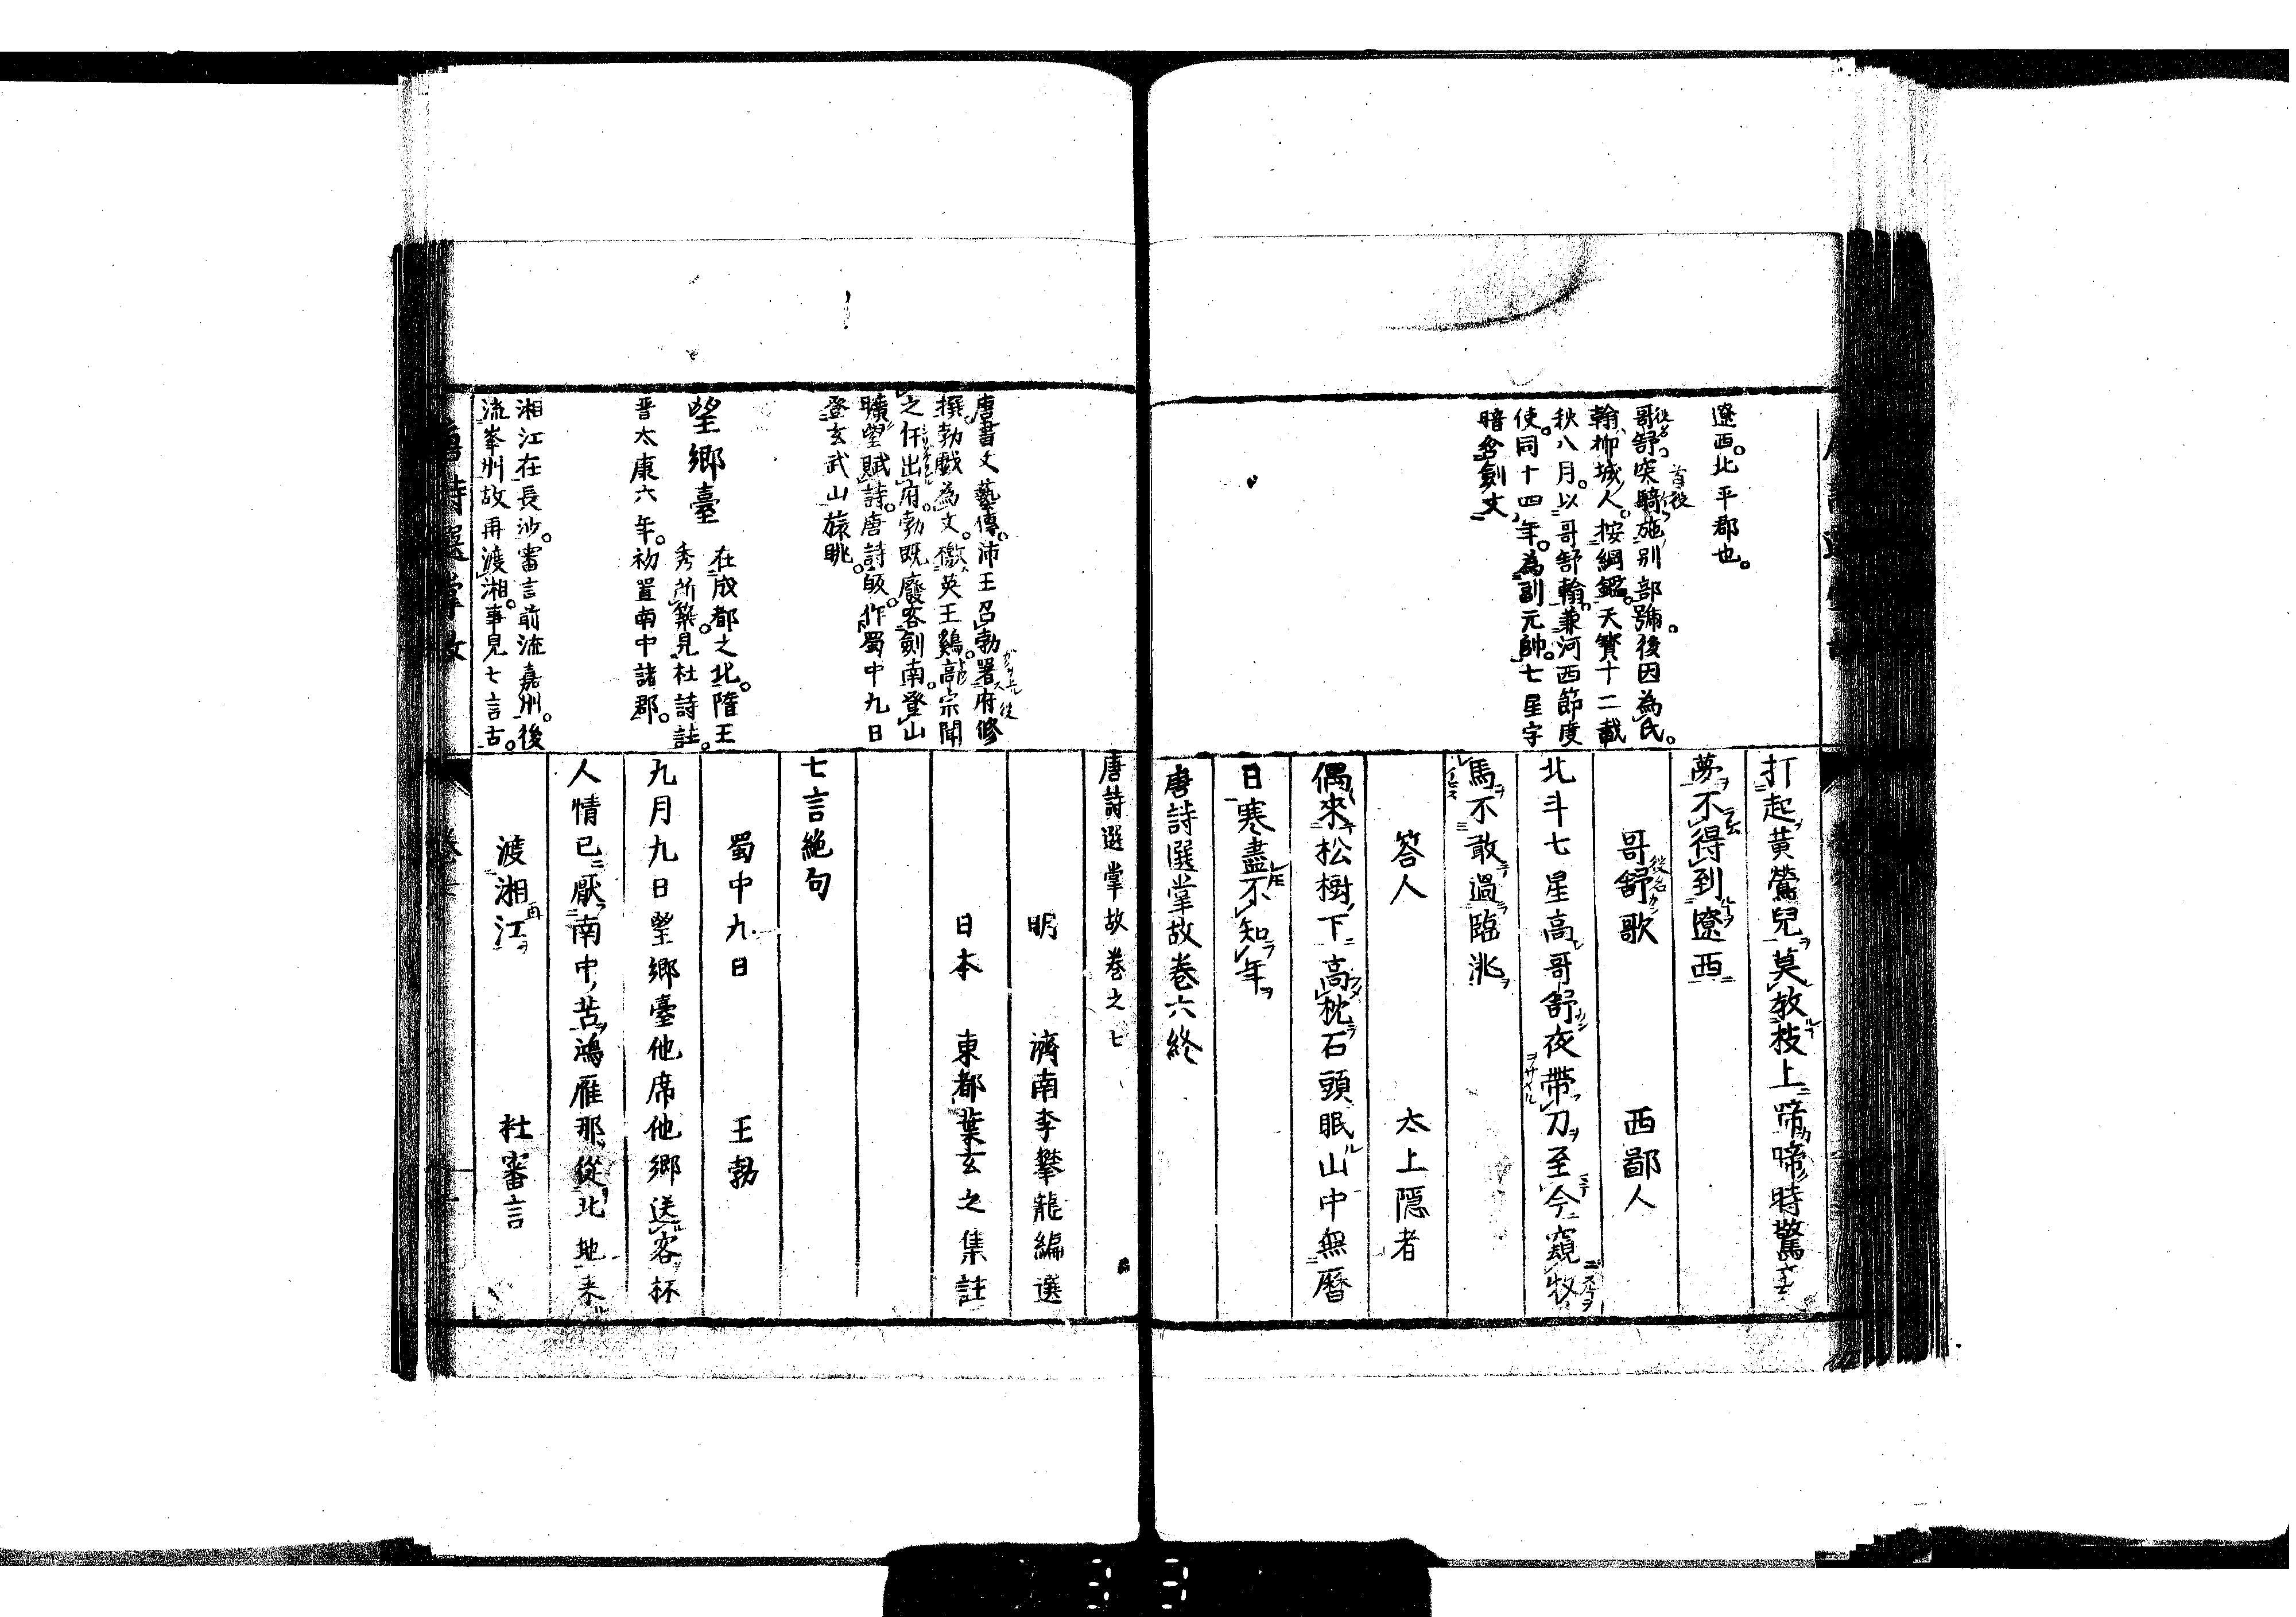 遼西。北平郡也。
哥舒。突騎施別部號。後因為氏。
翰柳城人。按綱鑑。天寳十二載
秋八月。以哥舒翰。兼河西節度
使。同十四年。為副元帥。七星字
暗含劍文
打起黄鶯兒莫教枝上啼啼時驚
夢不得到遼西
哥舒歌　西鄙人
北斗七星高哥舒夜帶刀至今窺牧
馬不敢過臨洮
答人　太上隱者
偶來松樹下高枕石頭眠山中無曆
日寒盡不知年
唐詩選掌故卷六終
唐書文藝傳。沛王召勃署府修
撰。勃戲為文。檄英王鷄。高宗聞
之仟出府。勃既廢客劍南。登山
曠望賦詩。唐詩皈。作蜀中九日
登玄武山旅眺。
望鄉臺　在成都之北。隋王
秀所築。見杜詩註。
晋太康六年。初置南中諸郡。
湘江在長沙。審言前流嘉州。後
流峯州故再渡湘。事見七言古。
唐詩選掌故卷之七
明　濟南李攀龍編選
日本　東都葉玄之集註
七言絶句
蜀中九日　王勃
九月九日望鄉臺他席他鄉送客杯
人情已厭南中苦鴻雁那從北地来
渡湘江　杜審言
唐詩選掌故